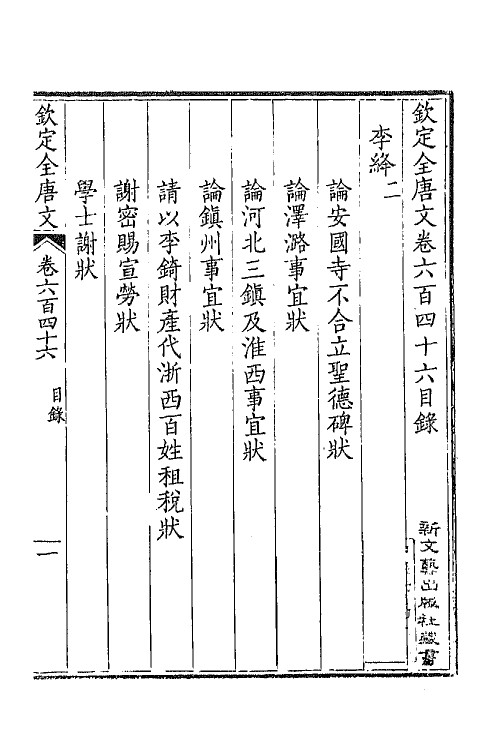 欽定全唐文卷六百四十六目錄
新文藝出版社藏書
李絳二
論安國寺不合立聖德碑狀
論澤潞事宜狀
論河北三鎮及淮西事宜狀
論鎮州事宜狀
請以李錡財產代浙西百姓租稅狀
謝密賜宣勞狀
學士謝狀
欽定全唐文
卷六百四十六
目錄
一